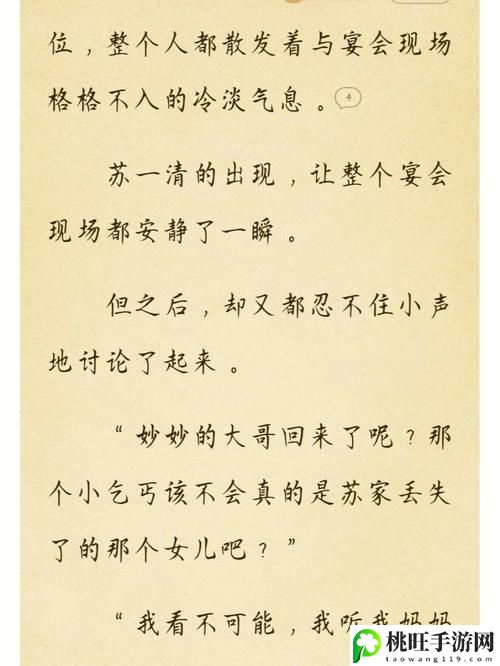 位，整个人都散发着与宴会现场
格格不入的冷淡气息。4
苏一清的出现，让整个宴会
现场都安静了一瞬。
但之后，却又都忍不住小声
地讨论了起来。
“妙妙的大哥回来了呢？那
个小乞丐该不会真的是苏家丢失
了的那个女儿吧？”
“我看不可能，我听我妈妈
桃旺手游网
taowang119.com